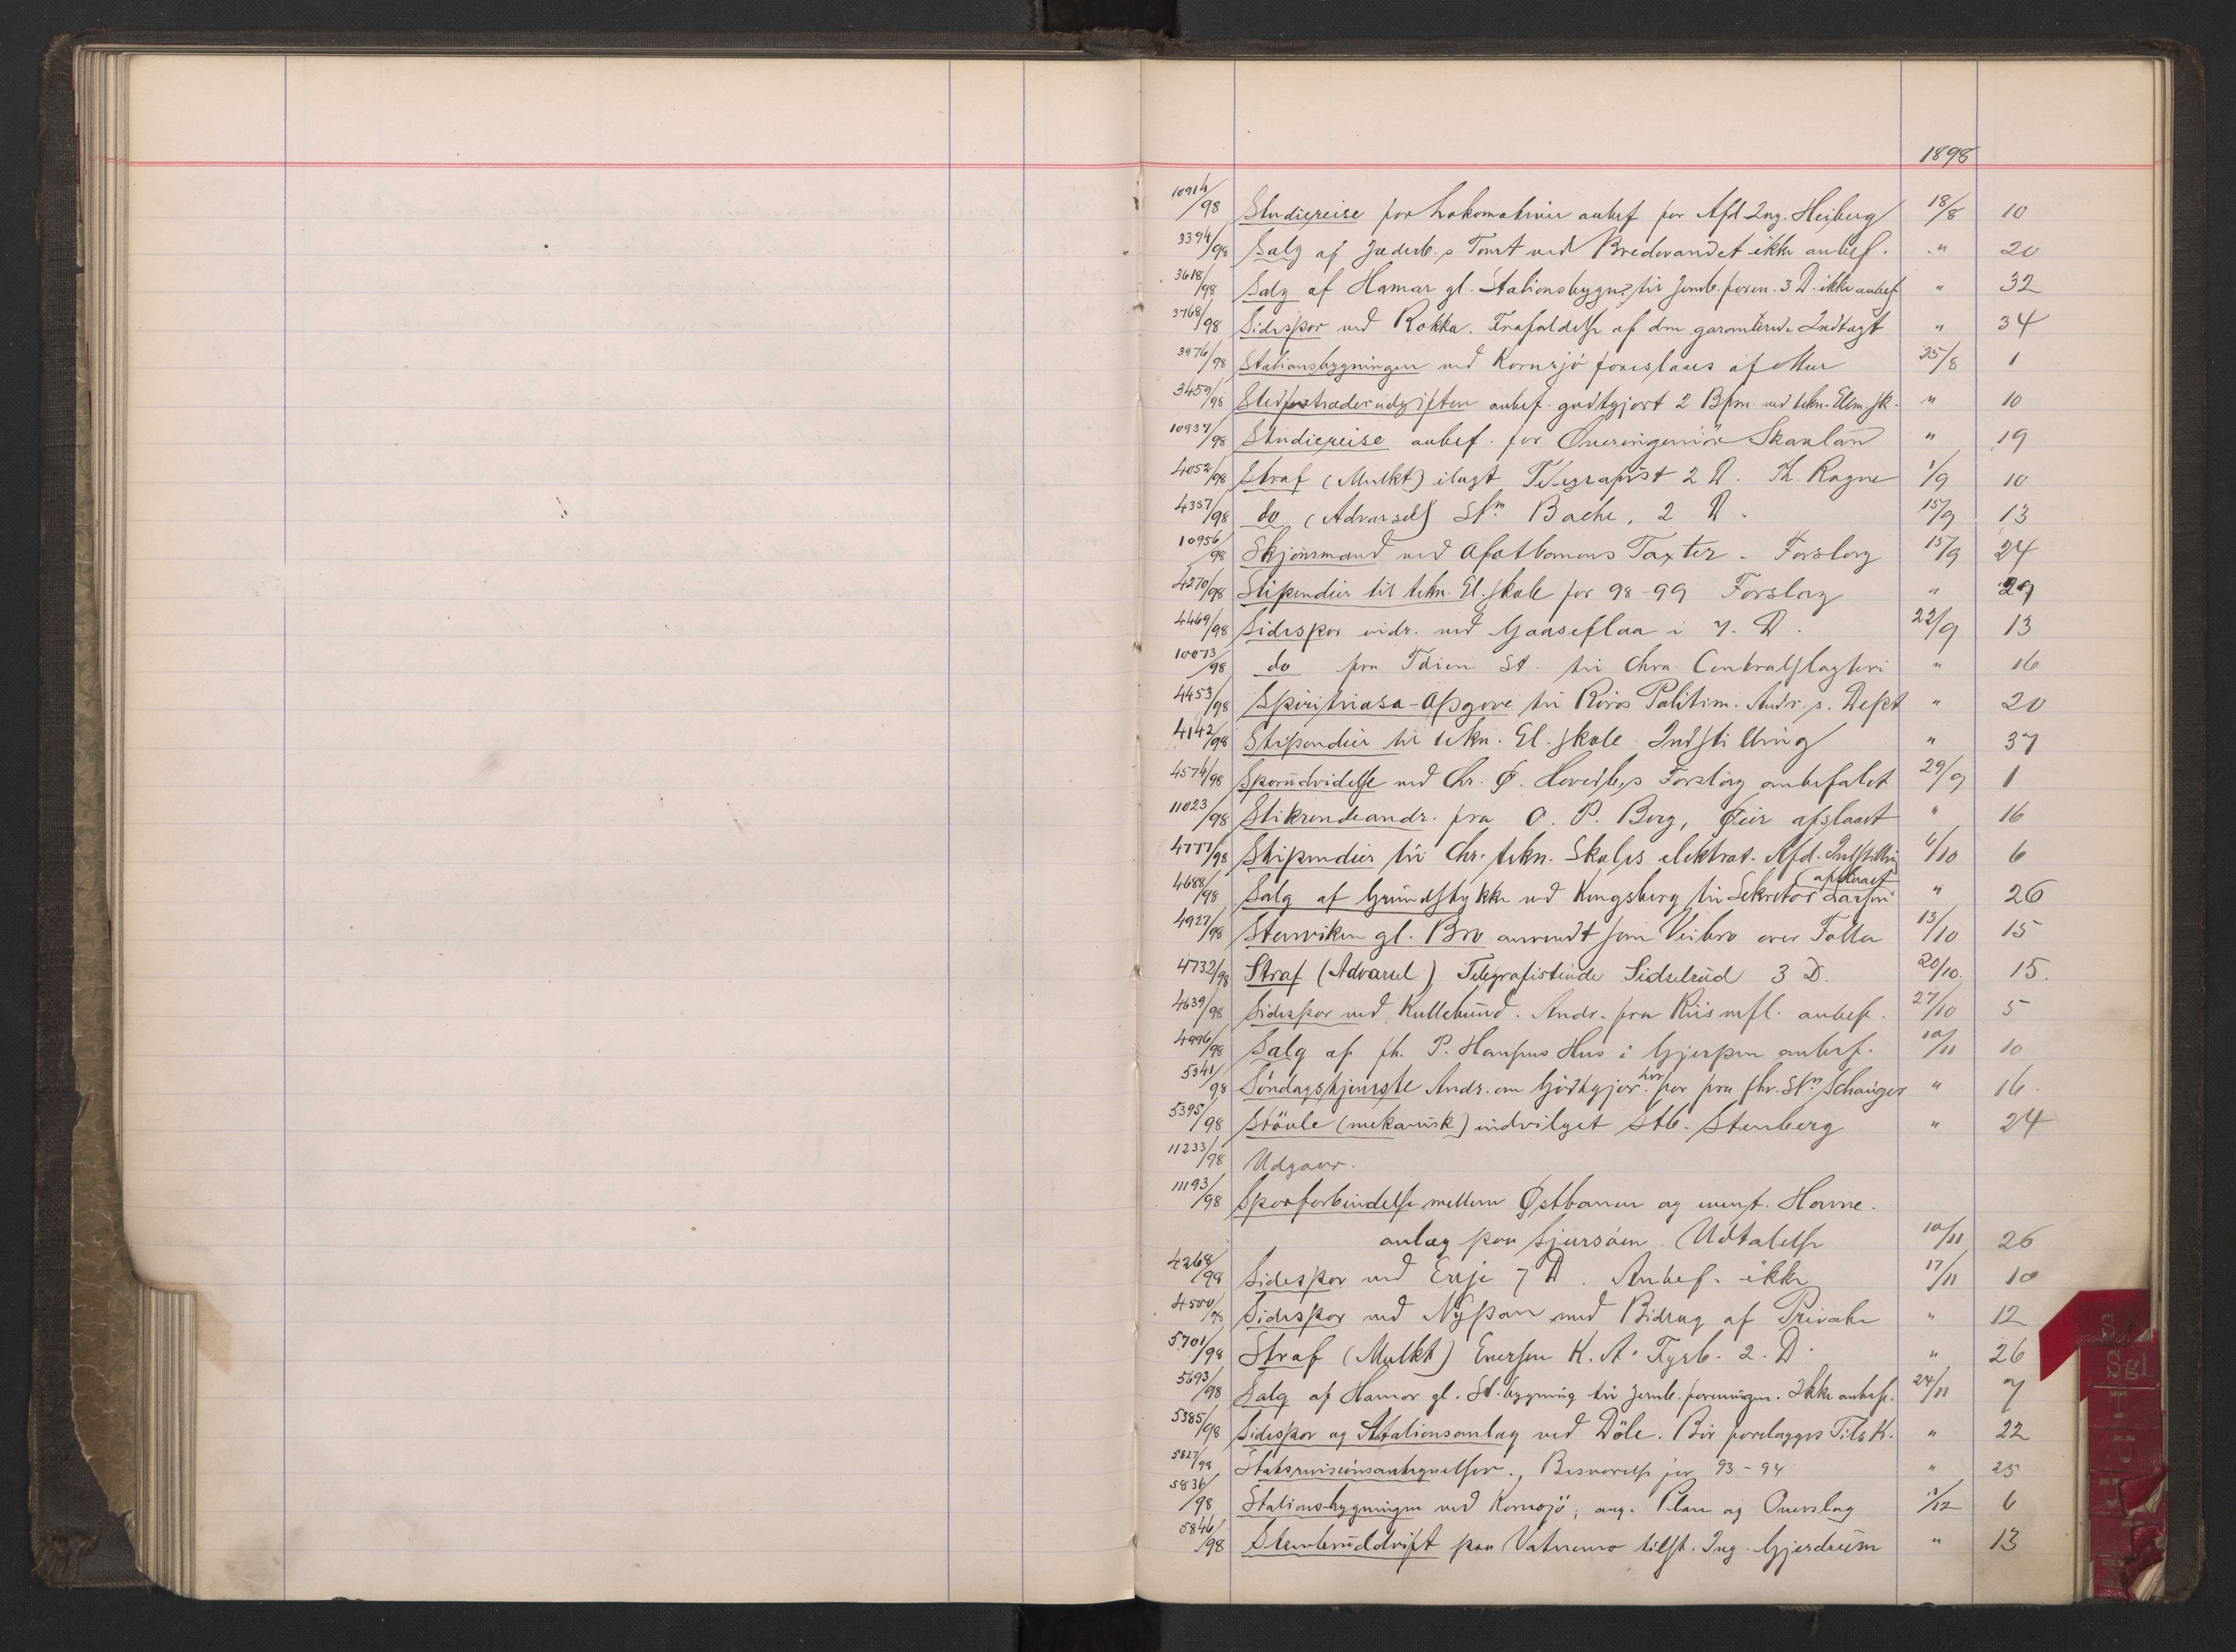 1898
10914/98 Studiereise for Lokomotiver anbef for Afd. Ing. Heiberg 18/8 10
3394/98 Salg af Jæderb.s Tomt ved Bredevandet ikke anbef. " 20
3618/98 Salg af Hamar gl. Stationsbygn. til Jernb. foren. 3 D. ikke anbef " 32
3768/98 Sidespor ved Rokke. Frafaldelse af den garanterede Indtægt " 34
3976/98 Stationsbygningen ved Kornsjö foreslaaes af Mur 25/8 1
3459/98 anbef. godtgjort 2 Bfm. ved tekn. Elm. sk. " 10
10937/98 Studiereise anbef. for Overingeniör Skavlan " 19
4052/98 Straf (Mulkt) ilagt Telegrafist 2 D. Th. Ragne 1/9 10
4357/98 do (Advarsel) Stm. Bache, 2 D. 15/9 13
10956/98 Skjönsmand ved Ofotbanens Taxter. Forslag 15/9 24
4270/98 Stipendier til tekn. El. skole for 98-99 Forslag " 29
4469/98 Sidespor vidr. ved Gaaseflaa i 7. D. 22/9 13
10073/98 do fra St. til Chra. Centralslagteri " 16
4453/98 til Röros Politim. Andr. s. Dept " 20
4142/98 Stipendier til tekn. El. skole. Indstilling " 37
4574/98 Sporudvidelse ved Chr. Ø. Hovedb.s Forslag anbefalet 29/9 1
11023/98 Stikrendeandr. fra O. P. Berg, Øier afslaaet " 16
4777/98 Stipendier til Chr. tekn. Skoles elektrot. Afd. Indstilling 6/10 6
4688/98 Salg af Grundstykke ved Kongsberg til Sekretær Larsen (afslaaet " 26
4927/98 Stenviken gl. Bro anvendt som Veibro over Folla 13/10 15
4732/98 Straf (Advarsel) Telegrafistinde Sidselrud 3 D. 20/10. 15.
4639/98 Sidespor ved Kullebund. Andr. fra Riis mfl. anbef. 27/10 5
4996/98 Salg af fh. P. Hansens Hus i Gjerpen anbef. 10/11 10
5341/98 Söndagstjeneste Andr. om Godtgjör. for fra fhv. Stm. Schanger " 16.
5395/98 Stövle (mekanisk) indvilget Stb. Stenberg " 24
11233/98 Udgaar.
11193/98 Sporforbindelse mellem Østbanen og event. Havne.
anlæg paa Sjursöen. Udtalelse 10/11 26
4268/98 Sidespor ved Evje 7 D. Anbef. ikke 17/11 10
4500/98 Sidespor ved Nypan med Bidrag af Private " 12
5701/98 Straf (Mulkt) Eversen K. A. Fyrb. 2. D. " 26
5693/98 Salg af Hamar gl. St. bygning til Jernb. foreningen. Ikke anbef. 24/11 7
5385/98 Sidespor og Stationsanlæg ved Döle. Bör forelægges Tils K. " 22
5627/98 Statsrevisionsantegnelser., Besvarelse for 93-94 " 25
5836/98 Stationsbygningen ved Kornsjö, ang. Plan og Overslag /12 6
5846/98 Stenbruddrift paa Vatnemo tilst. Ing. Gjerdrum " 13
Sgl